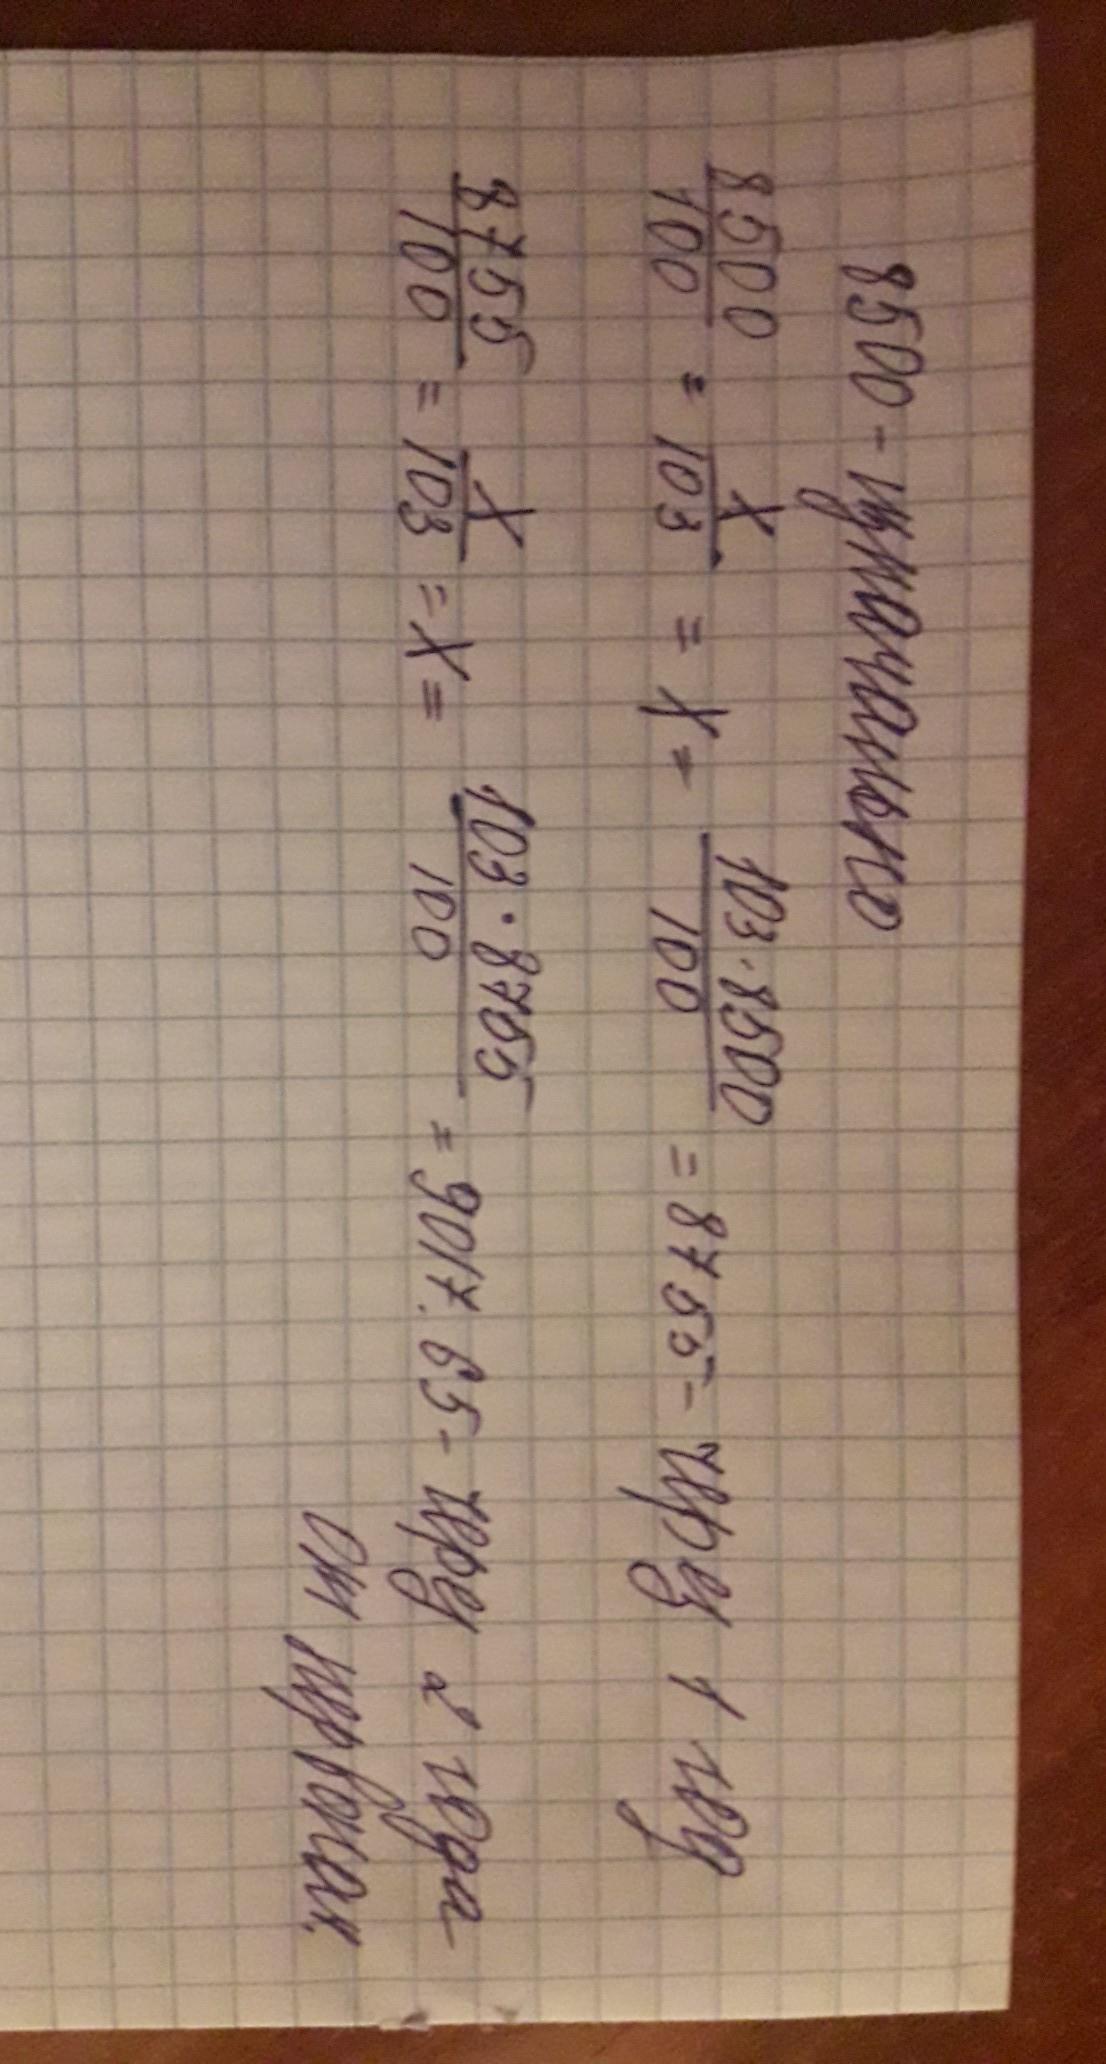 8500 - изначально
8500/100 = X/103 = X = 103·8500/100 = 8755 - через 1 нед
8755/100 = X/103 = X = 103·8755/100 = 9017.65 - через 2 недел
от первонач.